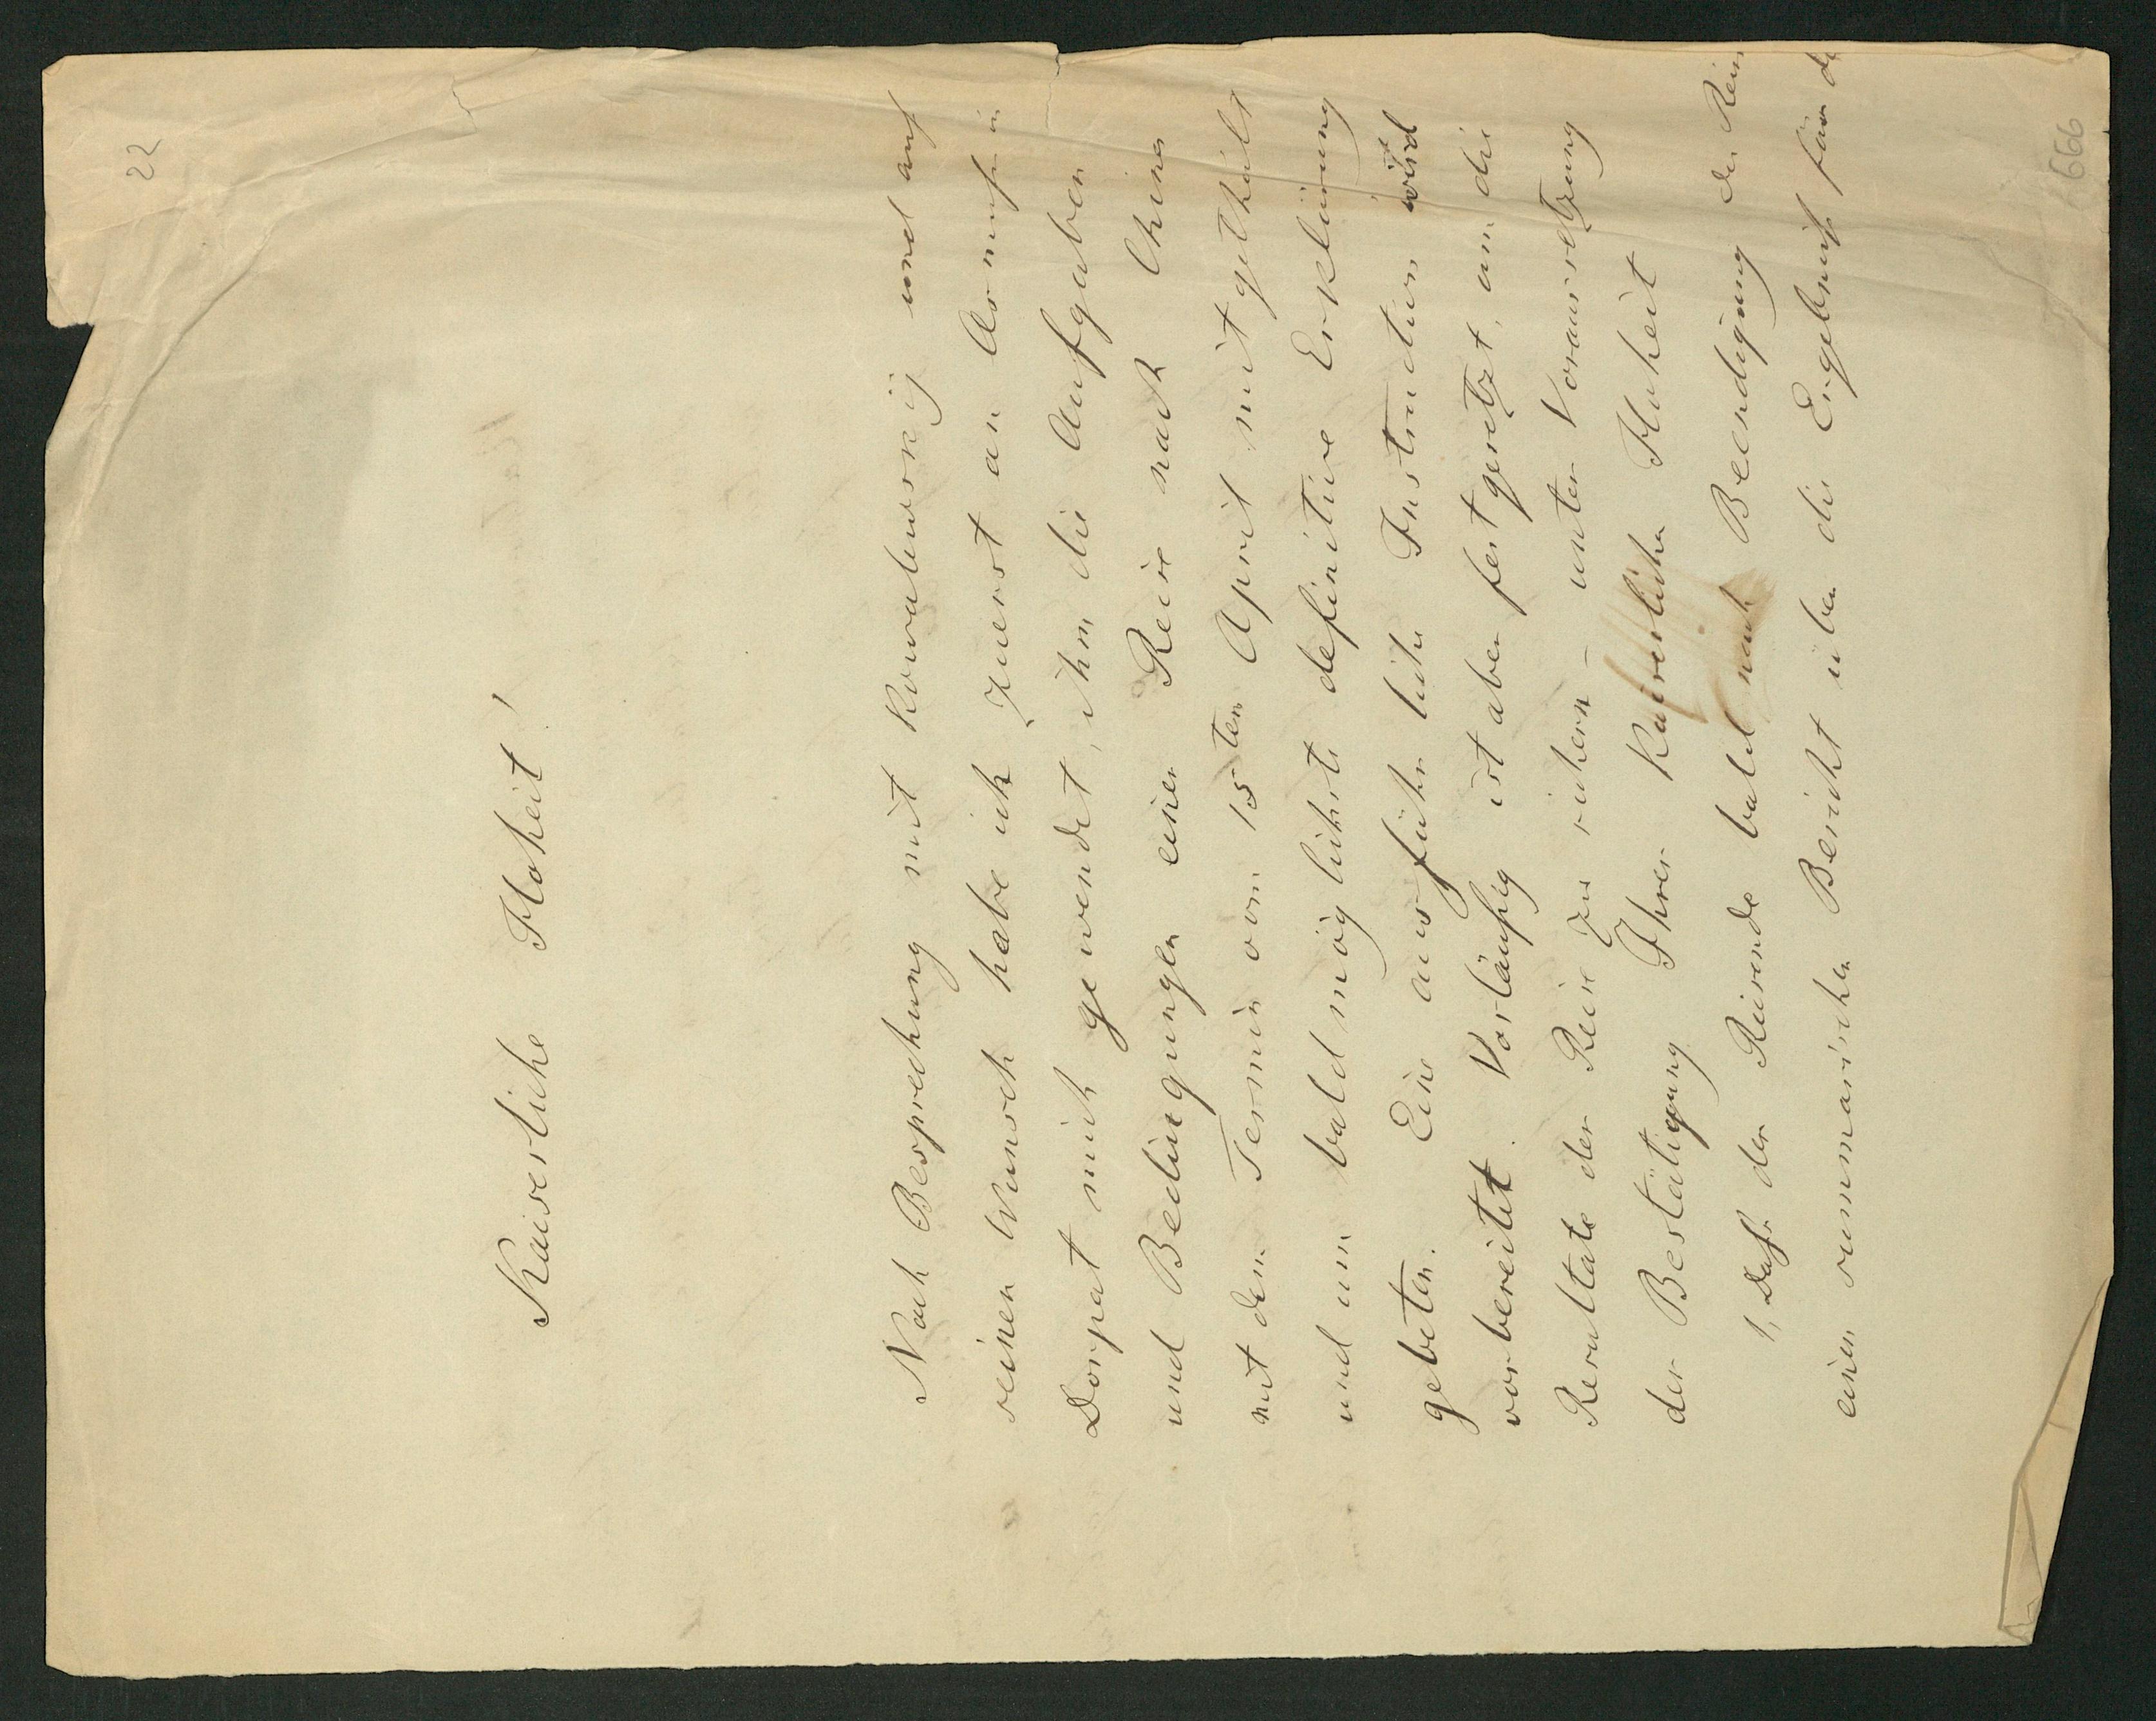 22
Kaiserliche Hoheit!
Nach Besprechung mit Kowalewskij und auf
seinen Wunsch habe ich zuerst an Armuß in
Dorpat mich gewendet, ihm die Aufgaben
und Bedingungen einer Reise nach China
mit dem Termin vom 15ten April mit getheilt
und um bald möglichste definitive Erklärung
gebeten. Eine ausführliche Instruction wird
vorbereitet. Vorläufig ist aber festgesetzt, um die
Resultate der Reise zu sichern – unter Voraussetzung
der Bestätigung Ihrer Kaiserlichen Hoheit
1, Daß der Reisende bald nach Beendigung der Reise
einen summarischen Bericht über die Ergebniß für
666